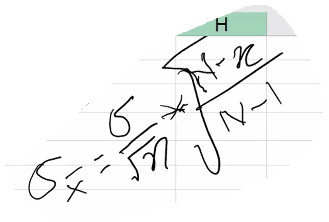 H
σx̄ = σ/√n * √(N-n/N-1)